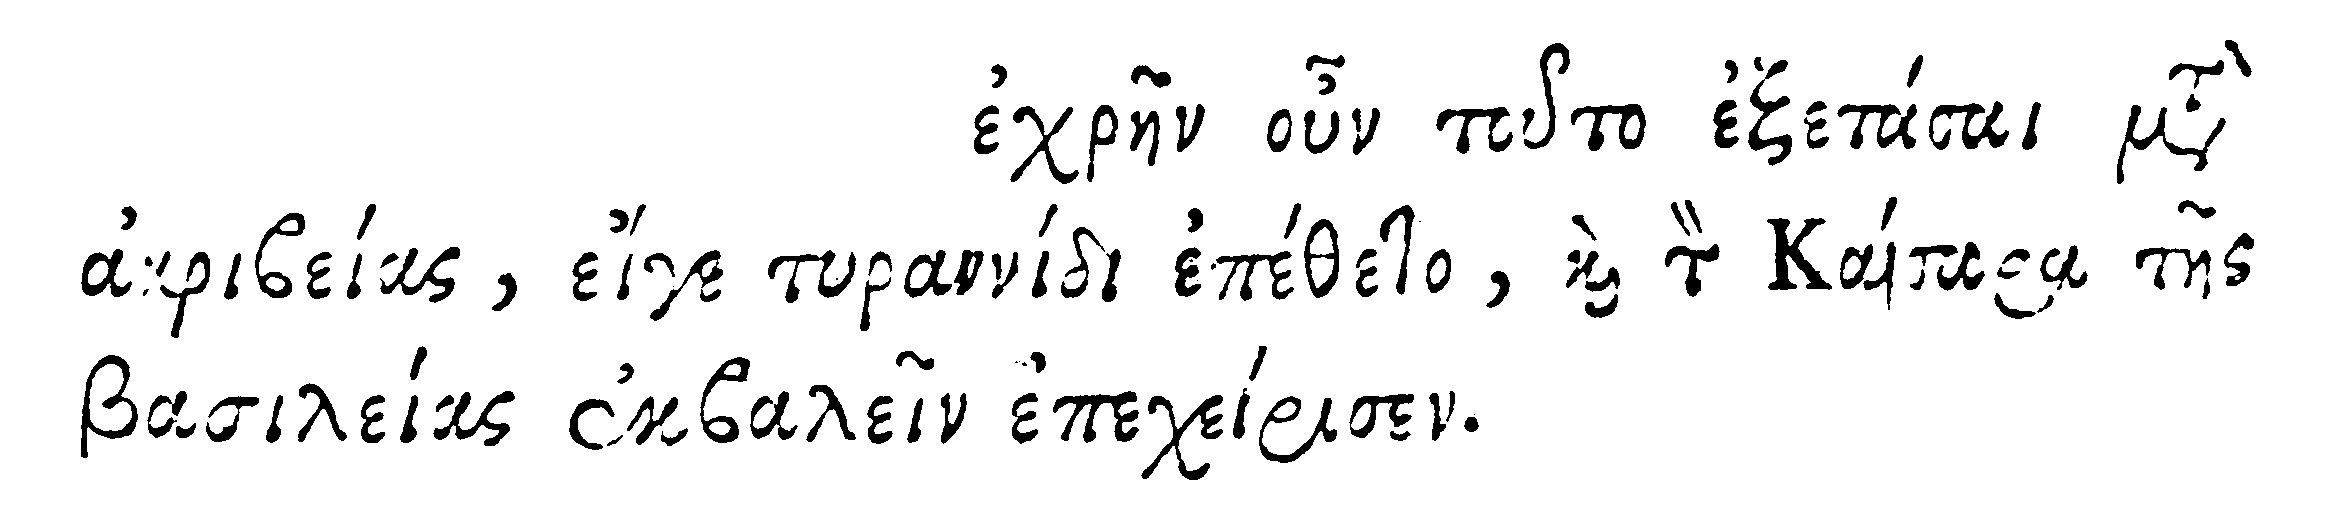 ἐχρῆν οὖν τοῦτο ἐξετάσαι μετὰ
ἀκριβείας, εἴγε τυραννίδι ἐπέθετο, καὶ τὸν Καίσαρα τῆς
βασιλείας ἐκβαλεῖν ἐπεχείρισεν.